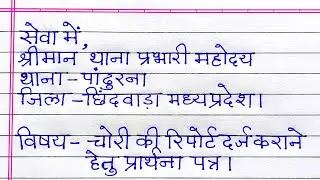 सेवा में,
श्रीमान थाना प्रभारी महोदय
थाना - पांढुरना
जिला - छिंदवाड़ा मध्यप्रदेश।
विषय - चोरी की रिपोर्ट दर्ज कराने
हेतु प्रार्थना पत्र।